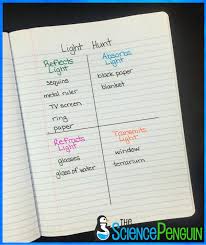 Light Hunt
Reflects
Light
sequins
metal ruler
TV screen
ring
paper
Absorbs
Light
black paper
blanket
Refracts
Light
glasses
glass of water
Transmits
Light
window
terrarium
THE
SciencePenguin